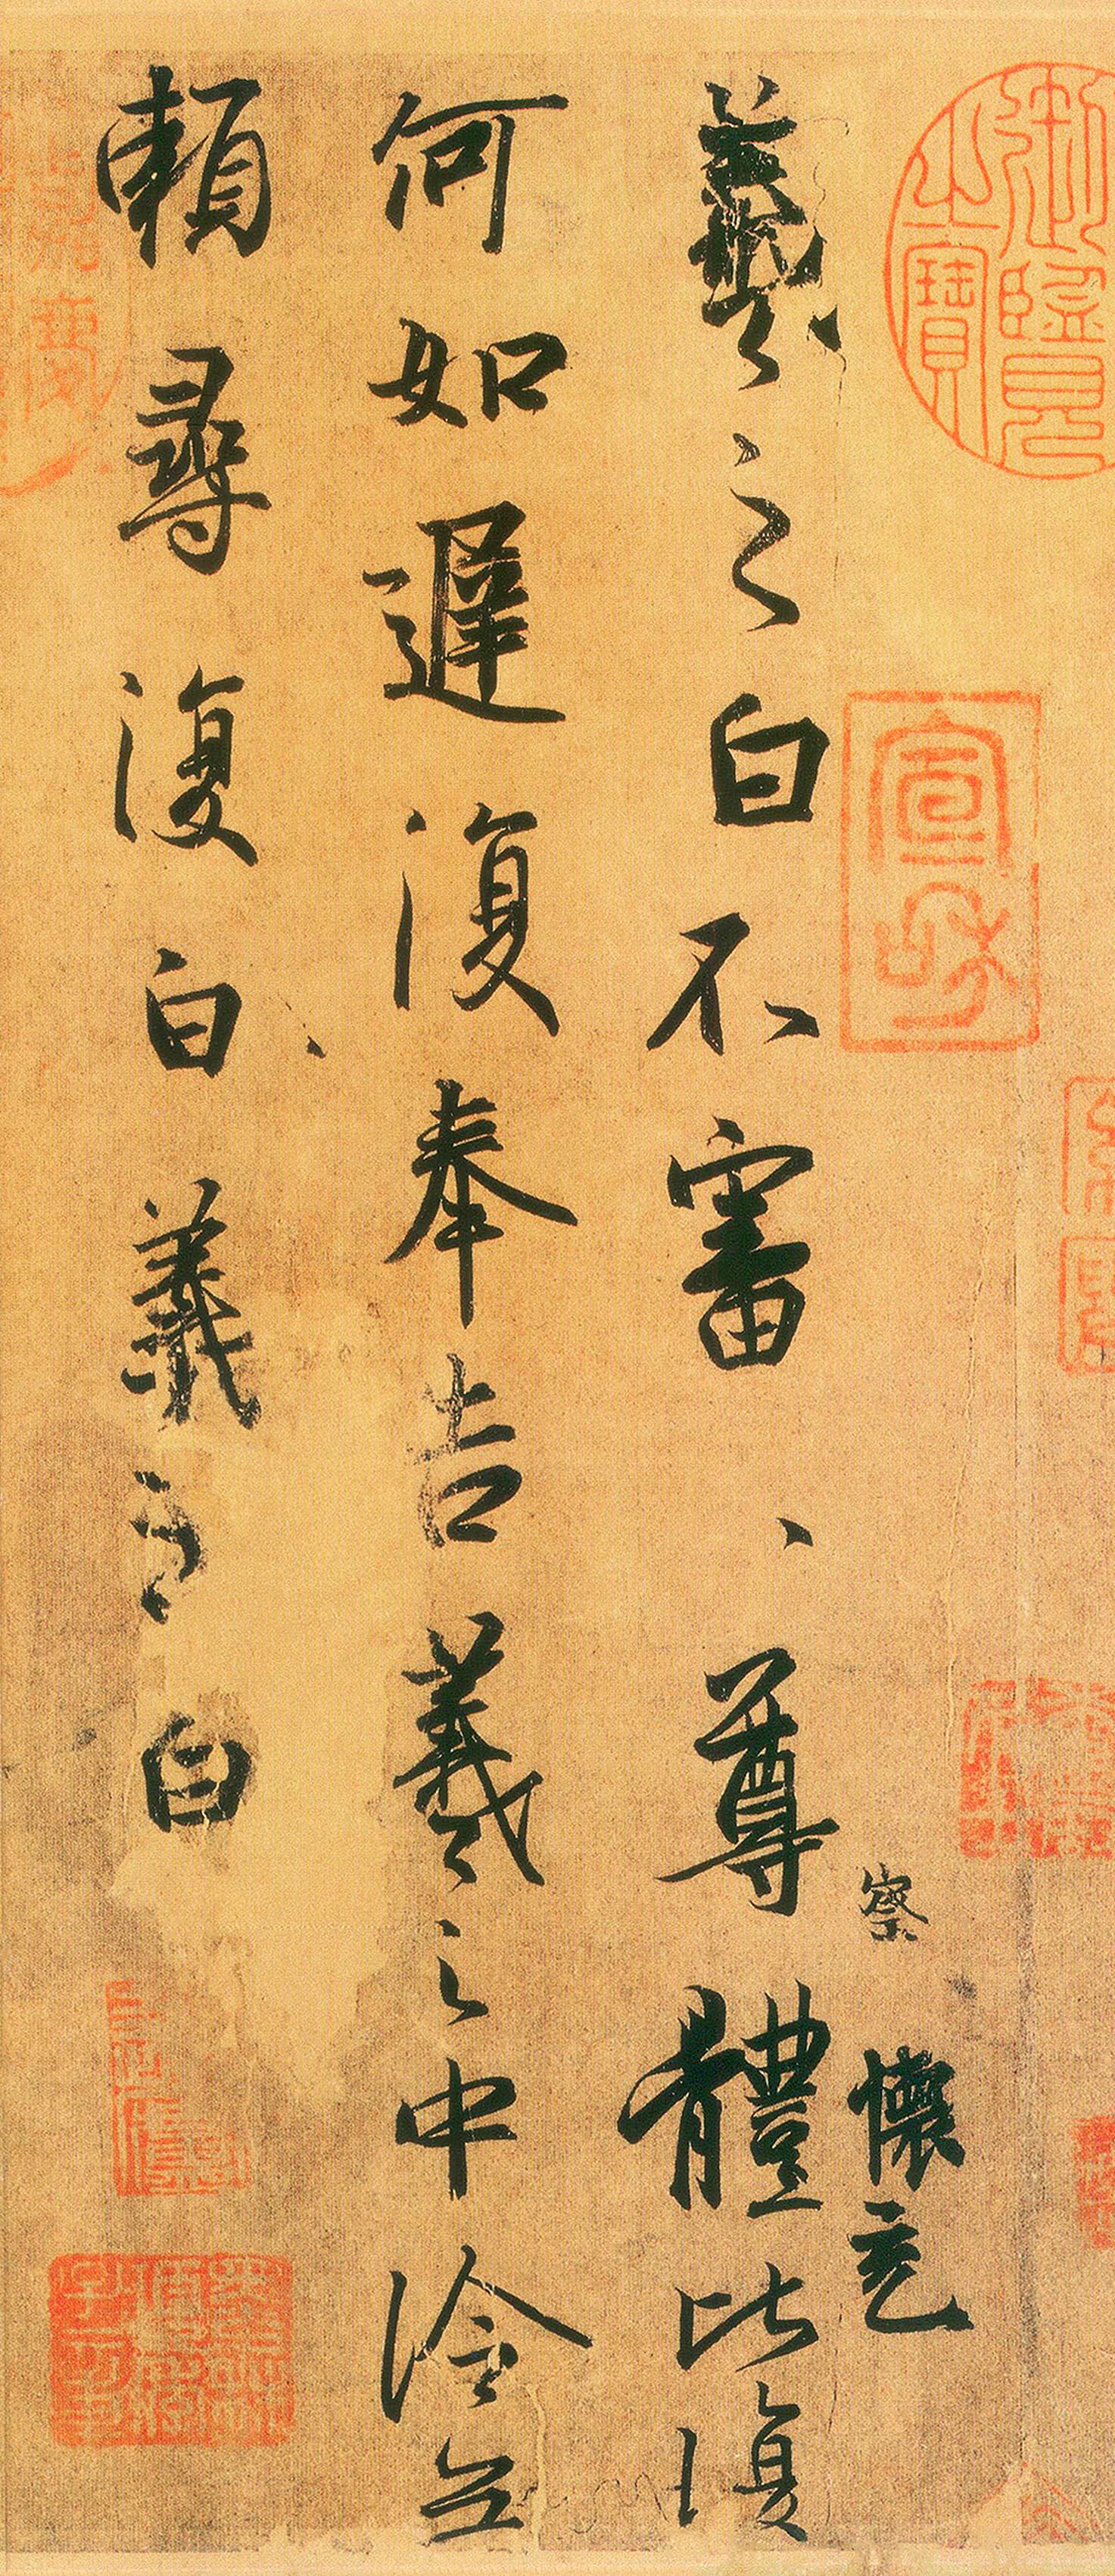 御覽之寶
宣和
察
懷充
羲之白不審尊體比復
何如遲復奉告羲之中冷無
賴尋復白羲之白